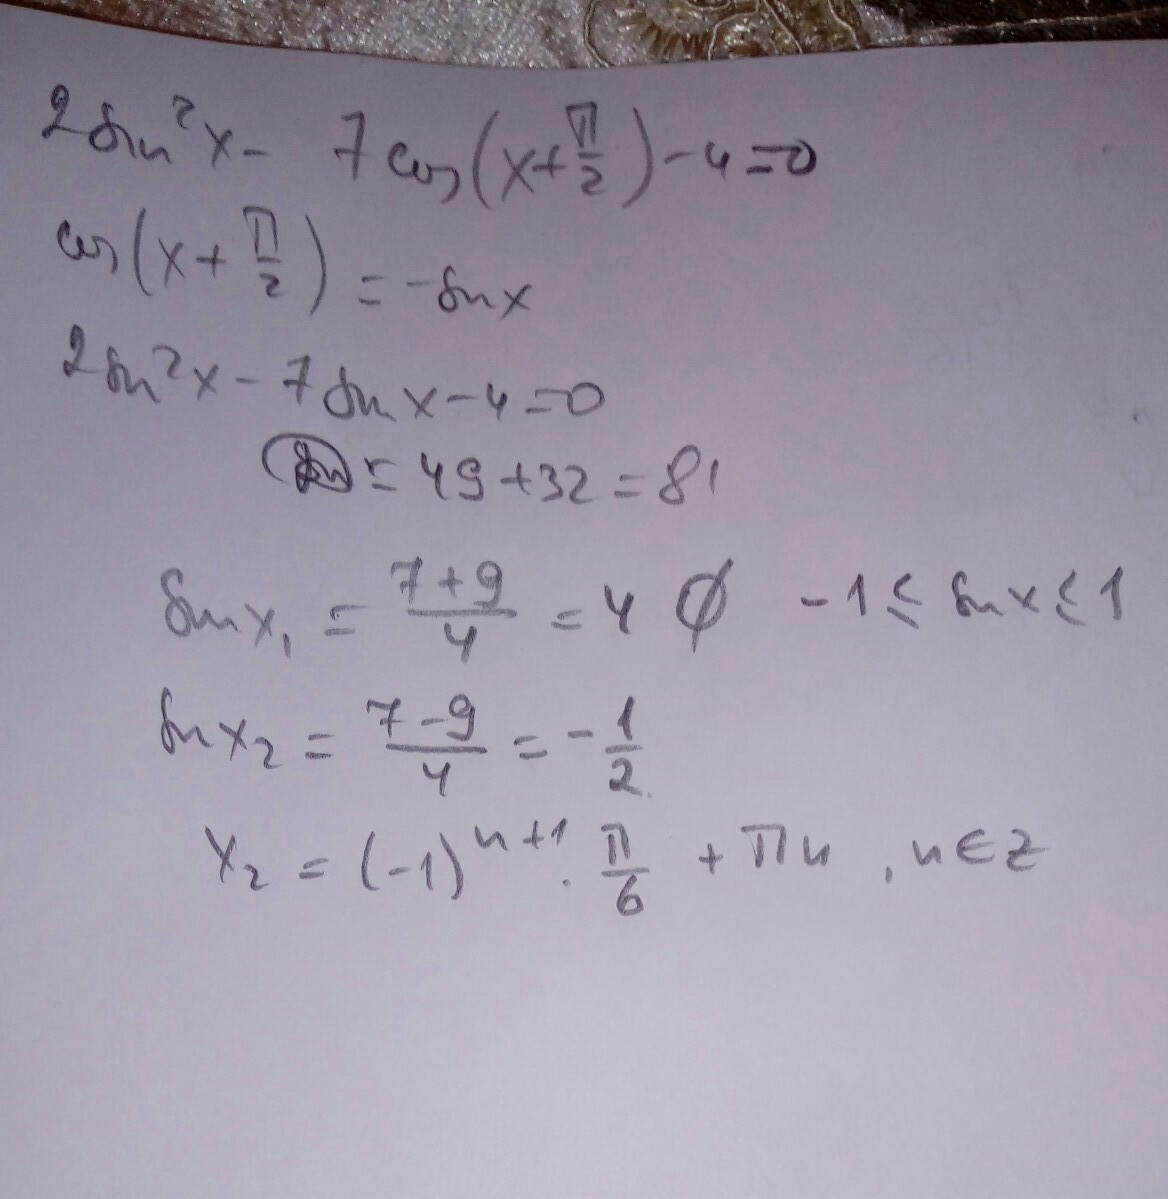 2sin²x - 7cos(x+π/2) - 4 = 0
cos(x + π/2) = -sinx
2sin²x - 7sinx - 4 = 0
= 49 + 32 = 81
sinx₁ = (7+9)/4 = 4 ∅ -1 ≤ sinx ≤ 1
sinx₂ = (7-9)/4 = -1/2
x₂ = (-1)ⁿ⁺¹ · π/6 + πn, n∈z